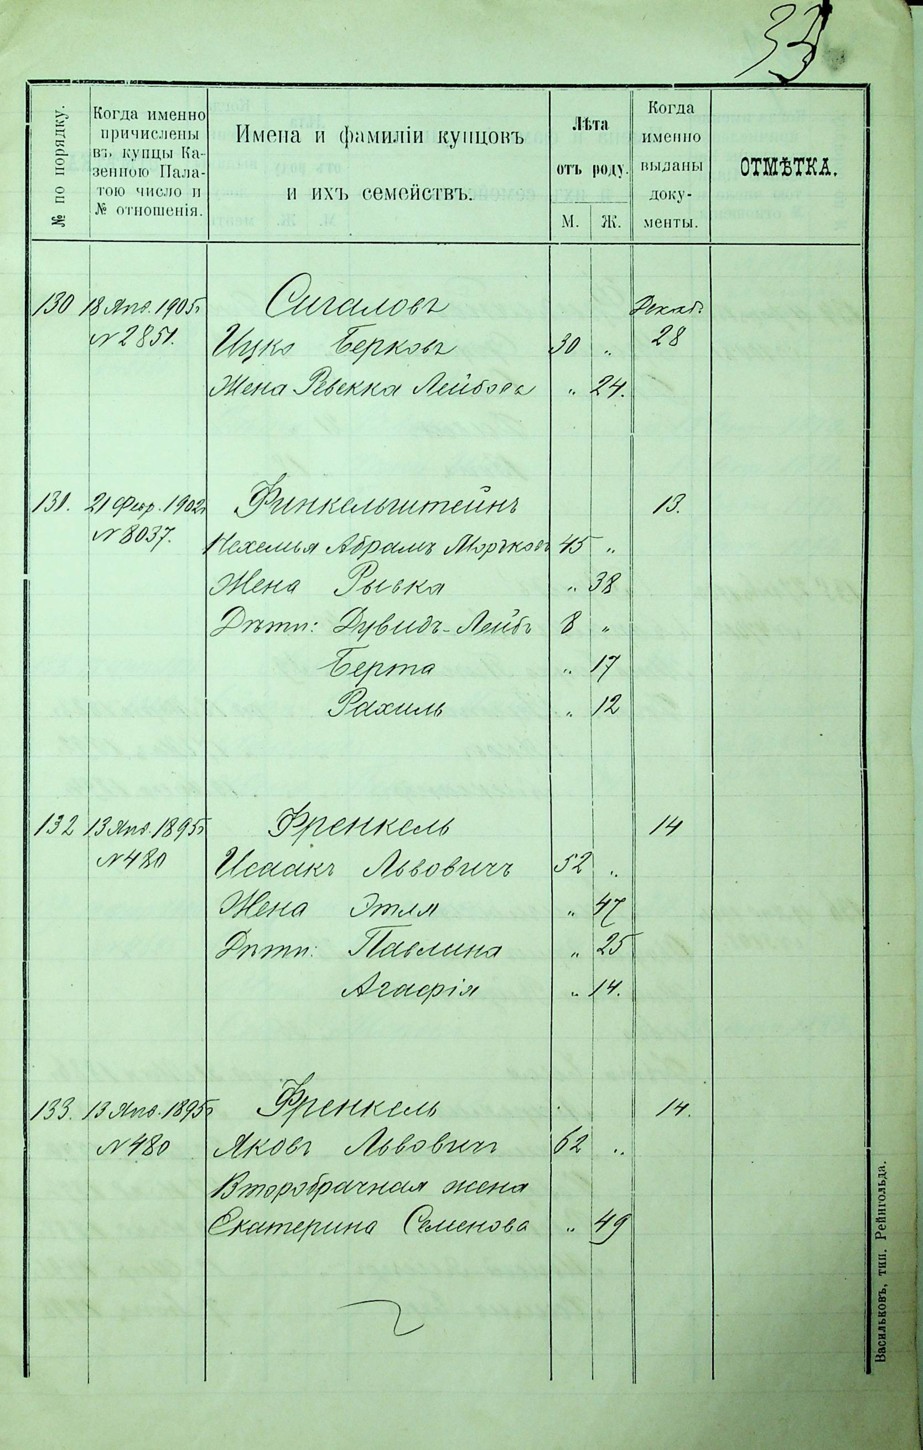 33
№ по порядку.
Когда именно
причислены
въ купцы Ка-
зенною Пала-
тою число и
№ отношенія.
Имена и фамиліи купцовъ
и ихъ семействъ.
Лѣта
отъ роду.
М. Ж.
Когда
именно
выданы
доку-
менты.
ОТМѢТКА.
130 18 Янв. 1905 Сигаловъ Декаб.
№ 2851. Ицко Берковъ 30 „ 28
Жена Ревекка Лейбова „ 24.
131. 21 Февр. 1902 Финкельштейнъ 13.
№ 8037. Нехемья Абрамъ Морьковъ 45 „
Жена Рывка „ 38
Дѣти: Дувидъ-Лейбъ 8 „
Берта „ 17
Рахиль „ 12
132 13 Янв. 1895 Френкель 14
№ 480 Исаакъ Львовичъ 52 „
Жена Этля „ 47
Дѣти: Павлина „ 25
Агафія „ 14.
133. 13 Янв. 1895 Френкель 14.
№ 480 Яковъ Львовичъ 62 „
Второбрачная жена
Екатерина Семенова „ 49
Васильковъ, тип. Рейнгольда.